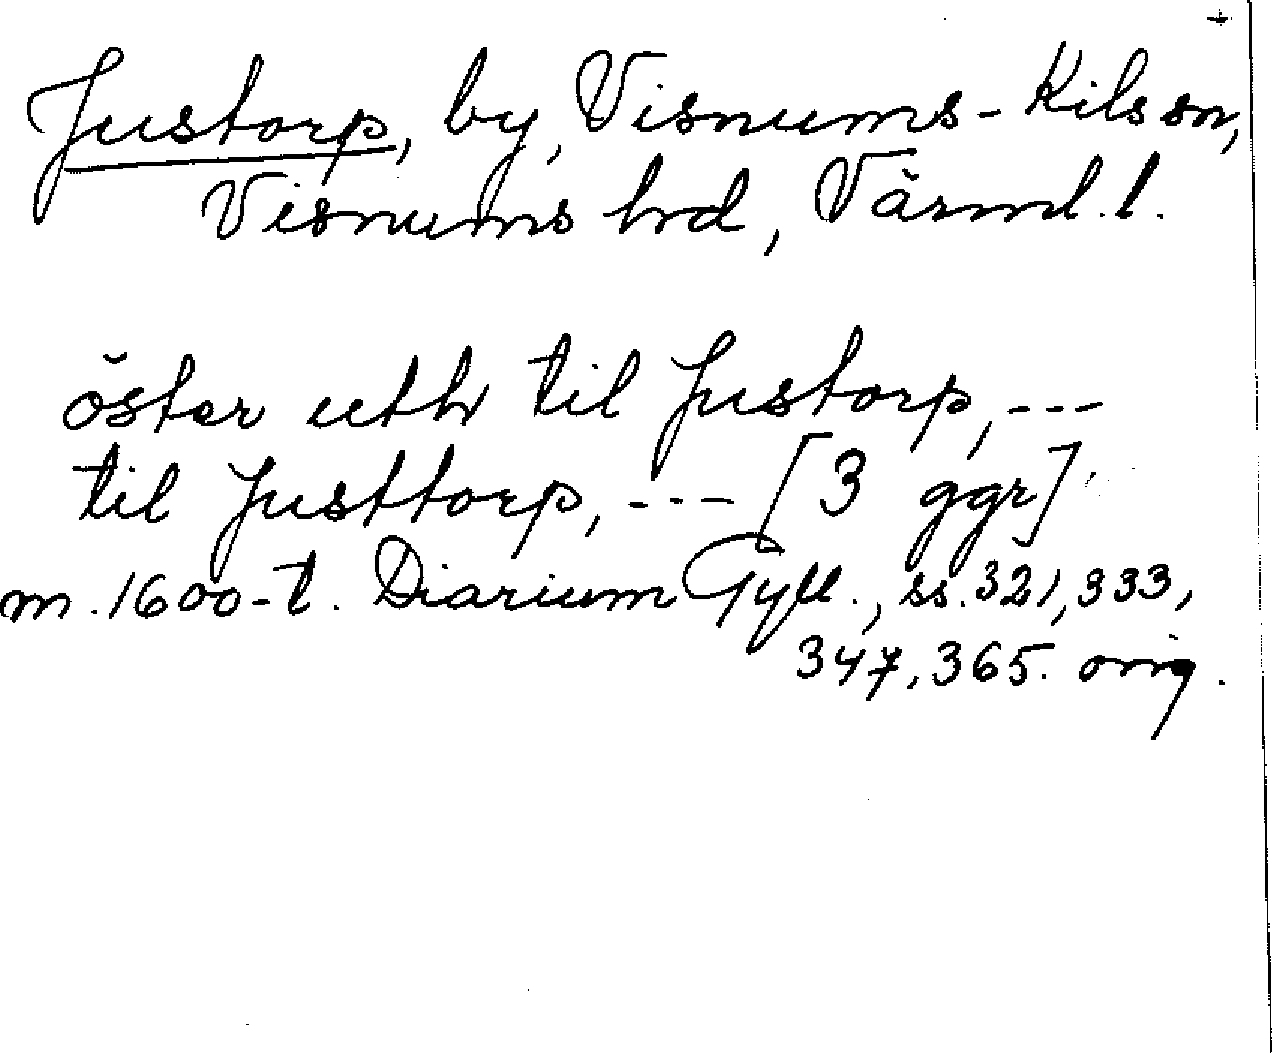 Justorp, by, Visnums-Kils sn,
Visnums hrd, Värml. l.
öster uth til Justorp, ---
til Justtorp, --- [3 ggr]
m. 1600-t. Diarium Gyll., ss. 321, 333,
347, 365. orig.